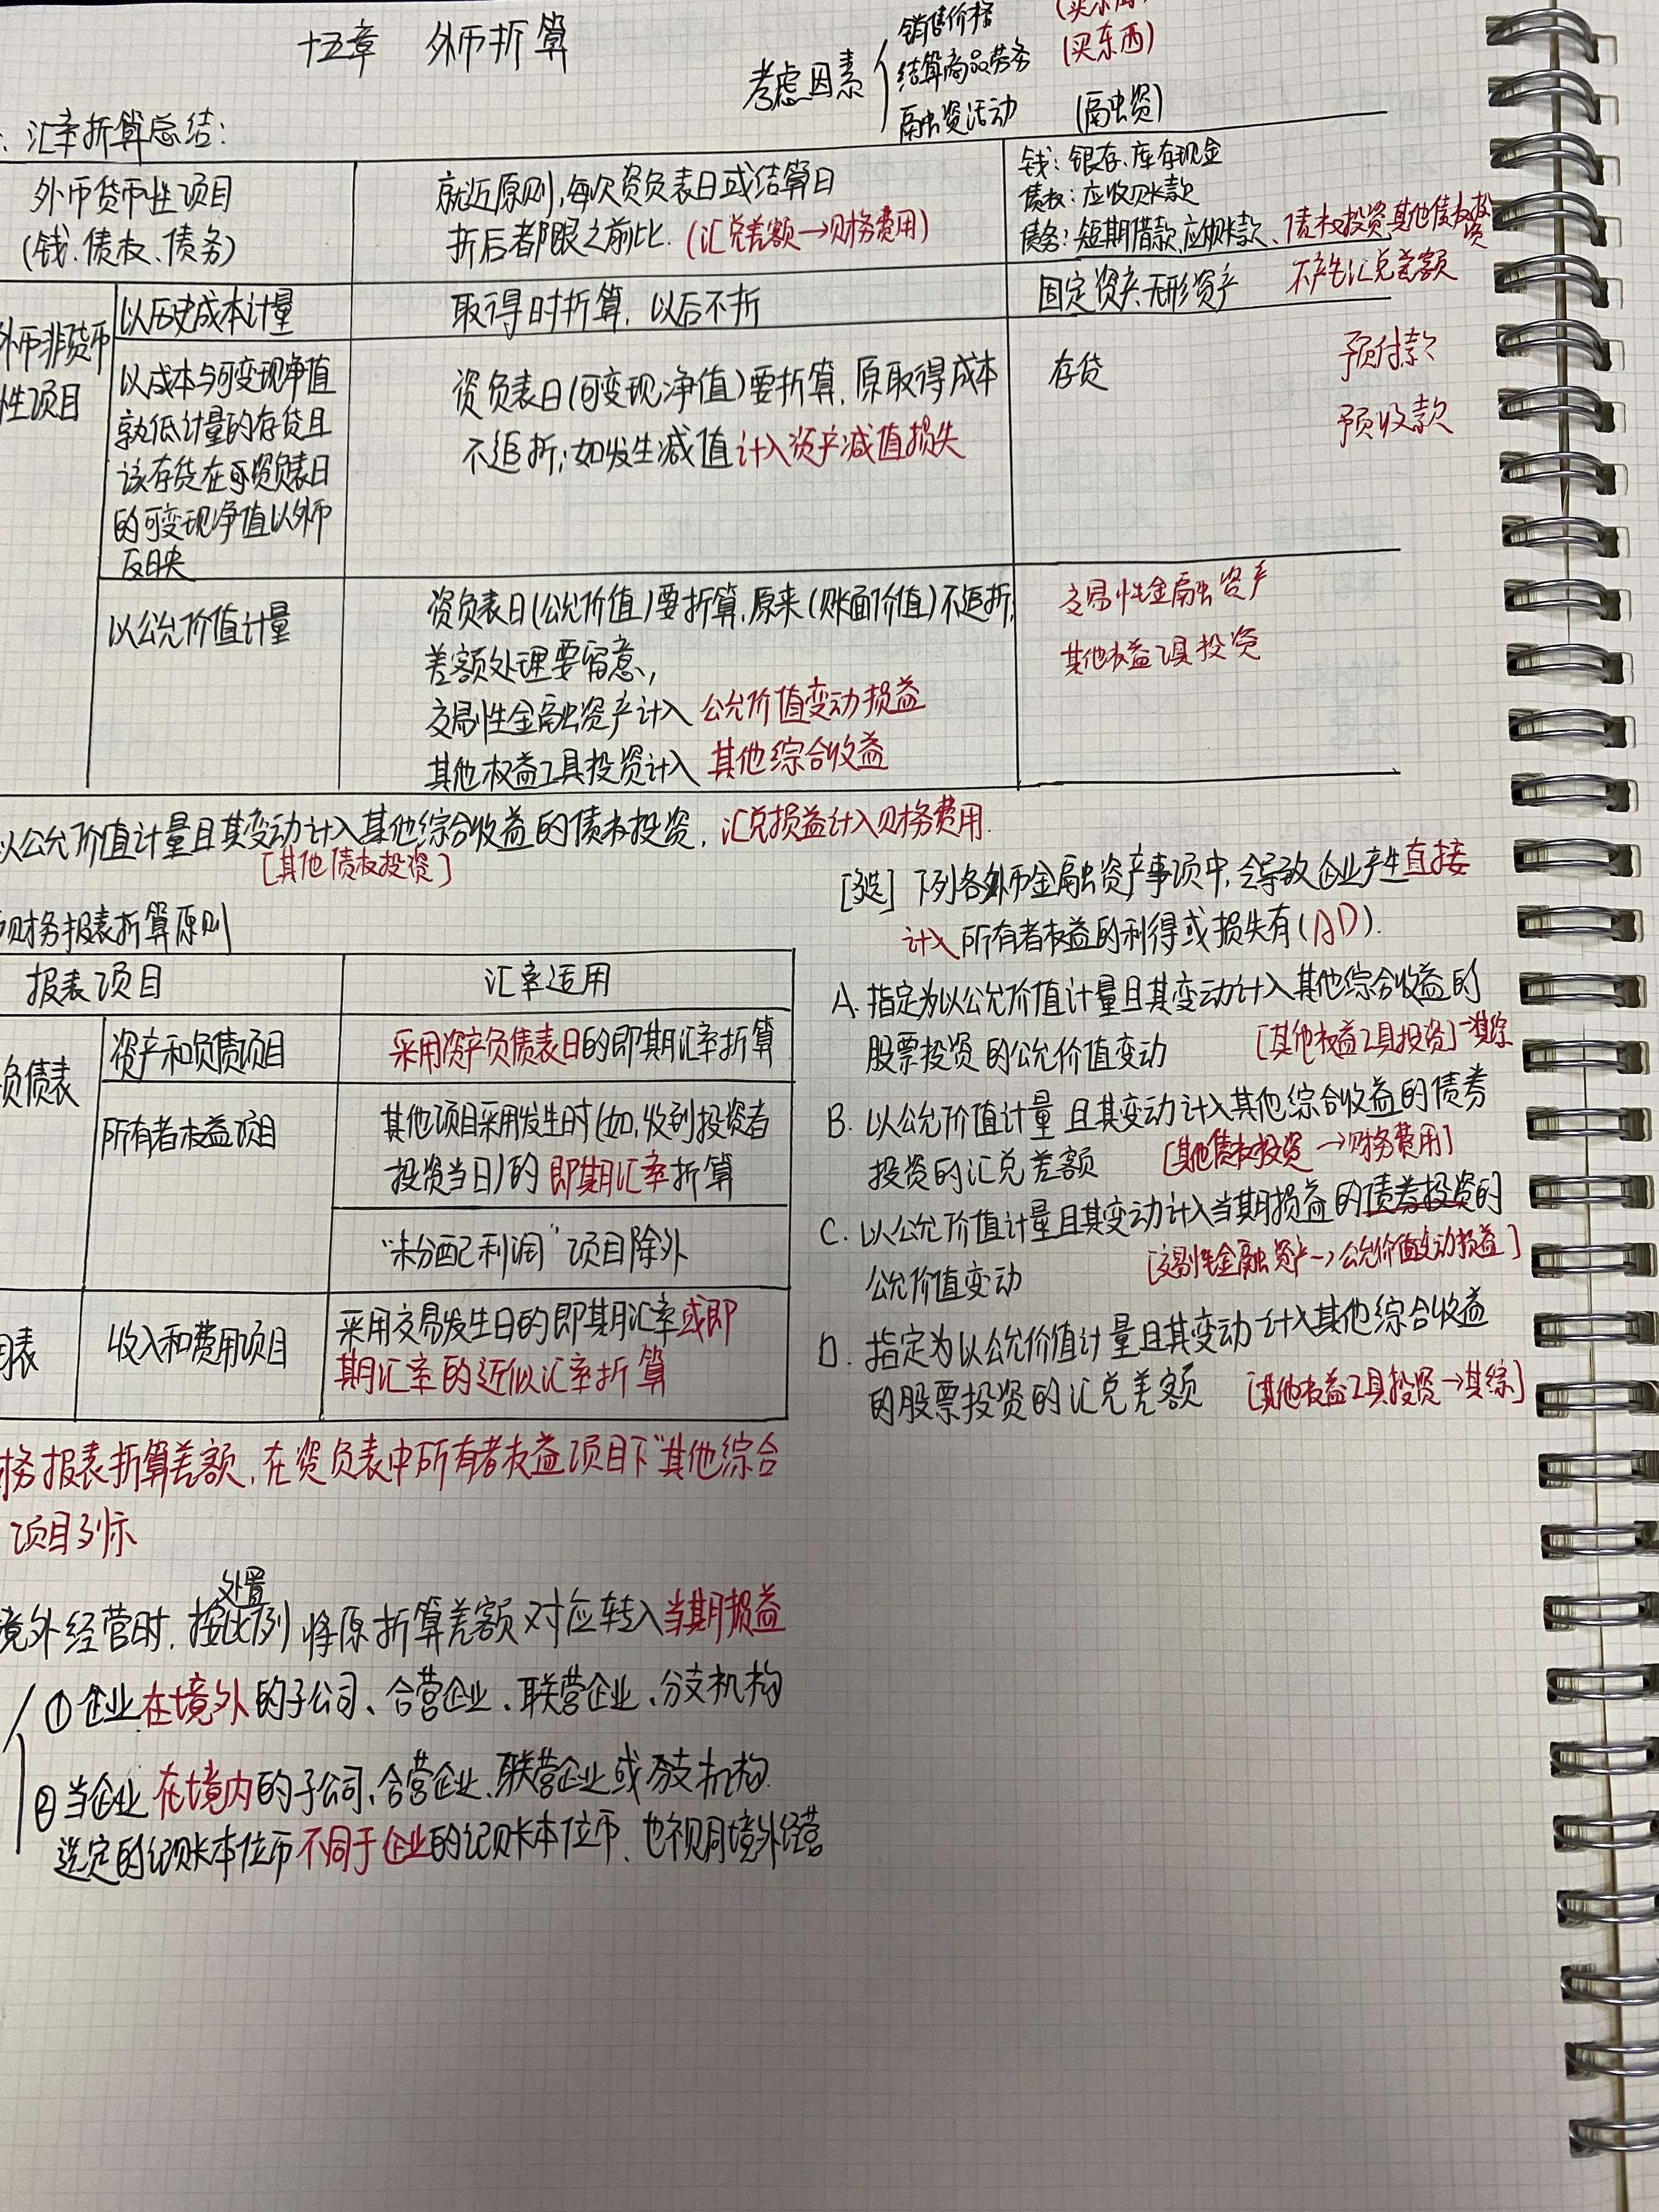 十五章 外币折算
考虑因素
销售价格
结算商品劳务 (买东西)
融资活动 (融资)
、汇率折算总结:
外币货币性项目
(钱、债权、债务)
就近原则,每次资负表日或结算日
折后者都跟之前比.(汇兑差额→财务费用)
钱:银存、库存现金
债权:应收账款
债务:短期借款、应付账款、债权投资、其他债权投资
外币非货币
性项目
以历史成本计量
取得时折算,以后不折
固定资产、无形资产 不产生汇兑差额
以成本与可变现净值
孰低计量的存货且
该存货在资负表日
的可变现净值以外币
反映
资负表日(可变现净值)要折算,原取得成本
不追折;如发生减值计入资产减值损失
存货
预付款
预收款
以公允价值计量
资负表日(公允价值)要折算,原来(账面价值)不追折,
差额处理要留意,
交易性金融资产计入 公允价值变动损益
其他权益工具投资计入 其他综合收益
交易性金融资产
其他权益工具投资
以公允价值计量且其变动计入其他综合收益的债权投资,汇兑损益计入财务费用.
[其他债权投资]
财务报表折算原则
报表项目 汇率适用
负债表
资产和负债项目 采用资产负债表日的即期汇率折算
所有者权益项目
其他项目采用发生时(如,收到投资者
投资当日)的即期汇率折算
“未分配利润”项目除外
表
收入和费用项目
采用交易发生日的即期汇率或即
期汇率的近似汇率折算
务报表折算差额,在资负表中所有者权益项目下“其他综合
项目列示
处置
境外经营时,按比例将原折算差额对应转入当期损益
①企业在境外的子公司、合营企业、联营企业、分支机构
②当企业在境内的子公司、合营企业、联营企业或分支机构.
选定的记账本位币不同于企业的记账本位币、也视同境外经营
[多选] 下列各外币金融资产事项中,会导致企业产生直接
计入所有者权益的利得或损失有(AD).
A. 指定为以公允价值计量且其变动计入其他综合收益的
股票投资的公允价值变动 [其他权益工具投资]→其综
B. 以公允价值计量且其变动计入其他综合收益的债券
投资的汇兑差额 [其他债权投资→财务费用]
C. 以公允价值计量且其变动计入当期损益的债券投资的
公允价值变动 [交易性金融资产→公允价值变动损益]
D. 指定为以公允价值计量且其变动计入其他综合收益
的股票投资的汇兑差额 [其他权益工具投资→其综]